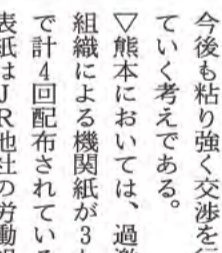 今後も粘り強く交渉を行
ていく考えである。
▽熊本においては、過激
組織による機関紙が3
で計4回配布されている
表紙はJR他社の労働